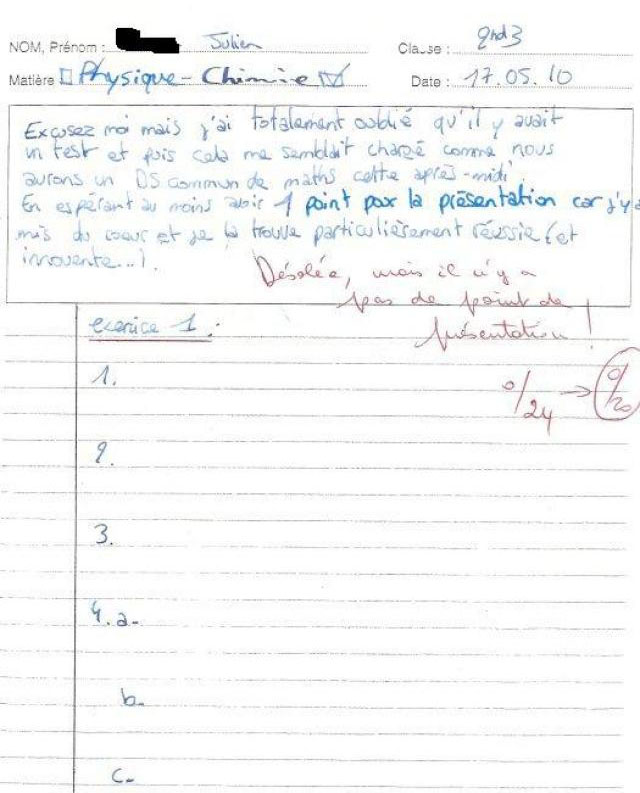 NOM, Prénom : Julien Classe : 2nd3
Matière Physique - Chimie Date : 17.05.10
Excusez moi mais j'ai totalement oublié qu'il y avait
un test et puis cela me semblait chargé comme nous
aurons un DS commun de maths cette après-midi.
En espérant au moins avoir 1 point pour la présentation car j'y ai
mis du coeur et je la trouve particulièrement réussie (et
innovente...).
Désolée, mais il n'y a
pas de point de
présentation !
exercice 1 :
0/24 → 0/20
1.
2.
3.
4. a-
b-
c-